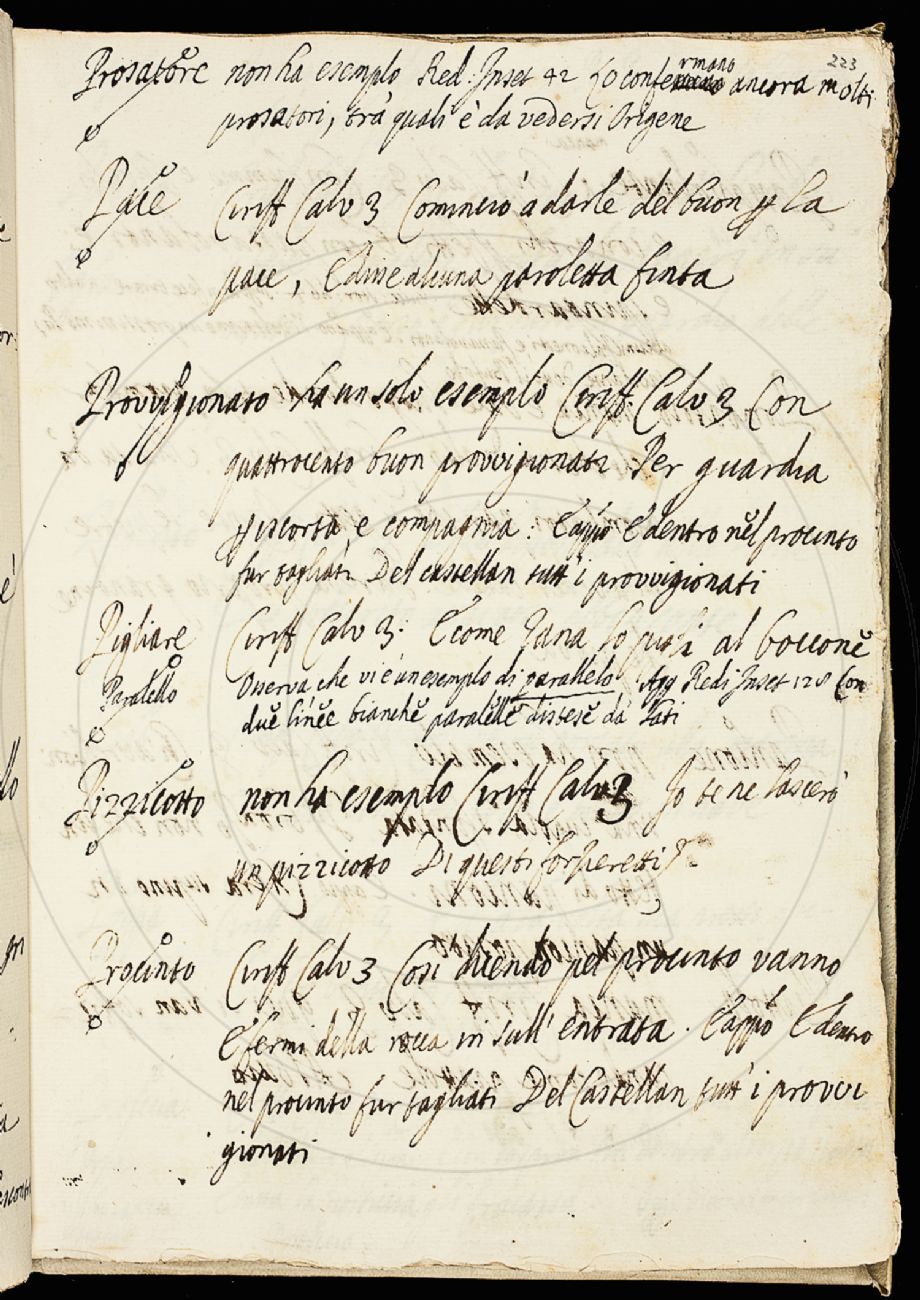 223
Prosatore non ha esemplo Red: Inset 42 Lo confermano ancora molti
prosatori, tra quali è da vedersi Origene
Pace Ciriff Calv 3 Cominciò a darle del buon p la
pace, E disse alcuna paroletta finta
Provvigionato ha un solo esemplo Ciriff. Calv 3 Con
quattrocento buon provvigionati Per guardia
p iscorta, e compagnia: E appiè E dentro nel procinto
fur tagliati Del castellan tutt' i provvigionati
Pigliare Ciriff Calv 3. E come Jana lo pigli al boccone
Paralello Osserva che vi è un esemplo di parallelo Agg Redi Inset 128 Con
due linee bianche paralelle distese da lati
Pizzicotto non ha esemplo Ciriff Calv 3 Io te ne lascerò
un pizzicotto Di questi forzieretti
Procinto Ciriff Calv 3 Così dicendo pel procinto vanno
E fermi della rocca in sull' entrata. E appiè E dentro
nel procinto fur tagliati Del Castellan tutt' i provvi
gionati